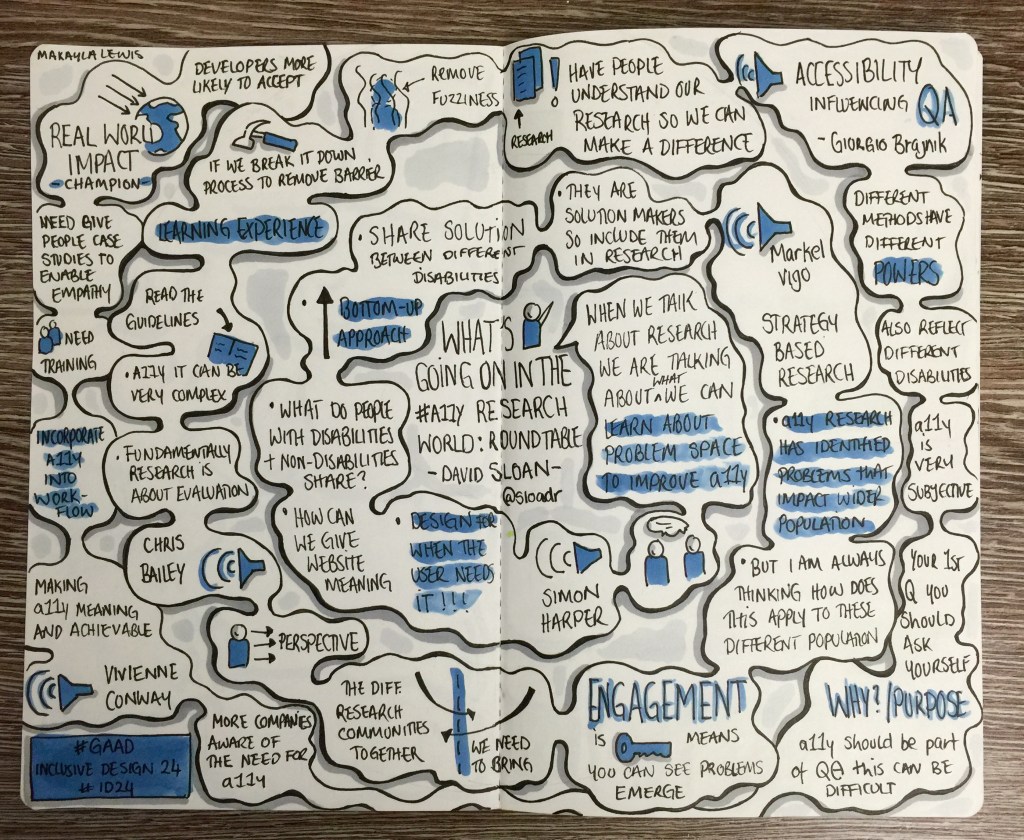 MAKAYLA LEWIS
DEVELOPERS MORE
LIKELY TO ACCEPT
REAL WORLD
IMPACT
-CHAMPION-
IF WE BREAK IT DOWN
PROCESS TO REMOVE BARRIER
REMOVE
FUZZINESS
RESEARCH
HAVE PEOPLE
UNDERSTAND OUR
RESEARCH SO WE CAN
MAKE A DIFFERENCE
ACCESSIBILITY
INFLUENCING QA
- GIORGIO Brajnik
NEED GIVE
PEOPLE CASE
STUDIES TO
ENABLE
EMPATHY
LEARNING EXPERIENCE
READ THE
GUIDELINES
NEED
TRAINING
• A11Y IT CAN BE
VERY COMPLEX
INCORPORATE
A11y
INTO
WORK-
FLOW
• FUNDAMENTALLY
RESEARCH IS
ABOUT EVALUATION
CHRIS
BAILEY
MAKING
a11y MEANING
AND ACHIEVABLE
VIVIENNE
CONWAY
#GAAD
INCLUSIVE DESIGN 24
#ID24
• SHARE SOLUTION
BETWEEN DIFFERENT
DISABILITIES
• BOTTOM-UP
APPROACH
• WHAT DO PEOPLE
WITH DISABILITIES
+ NON-DISABILITIES
SHARE?
• HOW CAN
WE GIVE
WEBSITE
MEANING
• DESIGN FOR
WHEN THE
USER NEEDS
IT!!!
WHAT'S
GOING ON IN THE
#A11y RESEARCH
WORLD: ROUNDTABLE
- DAVID SLOAN-
@sloadr
• THEY ARE
SOLUTION MAKERS
SO INCLUDE THEM
IN RESEARCH
WHEN WE TALK
ABOUT RESEARCH
WE ARE TALKING
ABOUT WHAT WE CAN
LEARN ABOUT
PROBLEM SPACE
TO IMPROVE a11y
SIMON
HARPER
PERSPECTIVE
MORE COMPANIES
AWARE OF
THE NEED FOR
a11y
THE DIFF.
RESEARCH
COMMUNITIES
TOGETHER
WE NEED
TO BRING
ENGAGEMENT
IS MEANS
YOU CAN SEE PROBLEMS
EMERGE
Markel
Vigo
STRATEGY
BASED
RESEARCH
• a11y RESEARCH
HAS IDENTIFIED
PROBLEMS THAT
IMPACT WIDER
POPULATION
• BUT I AM ALWAYS
THINKING HOW DOES
THIS APPLY TO THESE
DIFFERENT POPULATION
DIFFERENT
METHODS HAVE
DIFFERENT
POWERS
ALSO REFLECT
DIFFERENT
DISABILITIES
a11y
IS
VERY
SUBJECTIVE
YOUR 1ST
Q YOU
SHOULD
ASK
YOURSELF
WHY?/PURPOSE
a11y should be part
of QA this CAN BE
DIFFICULT